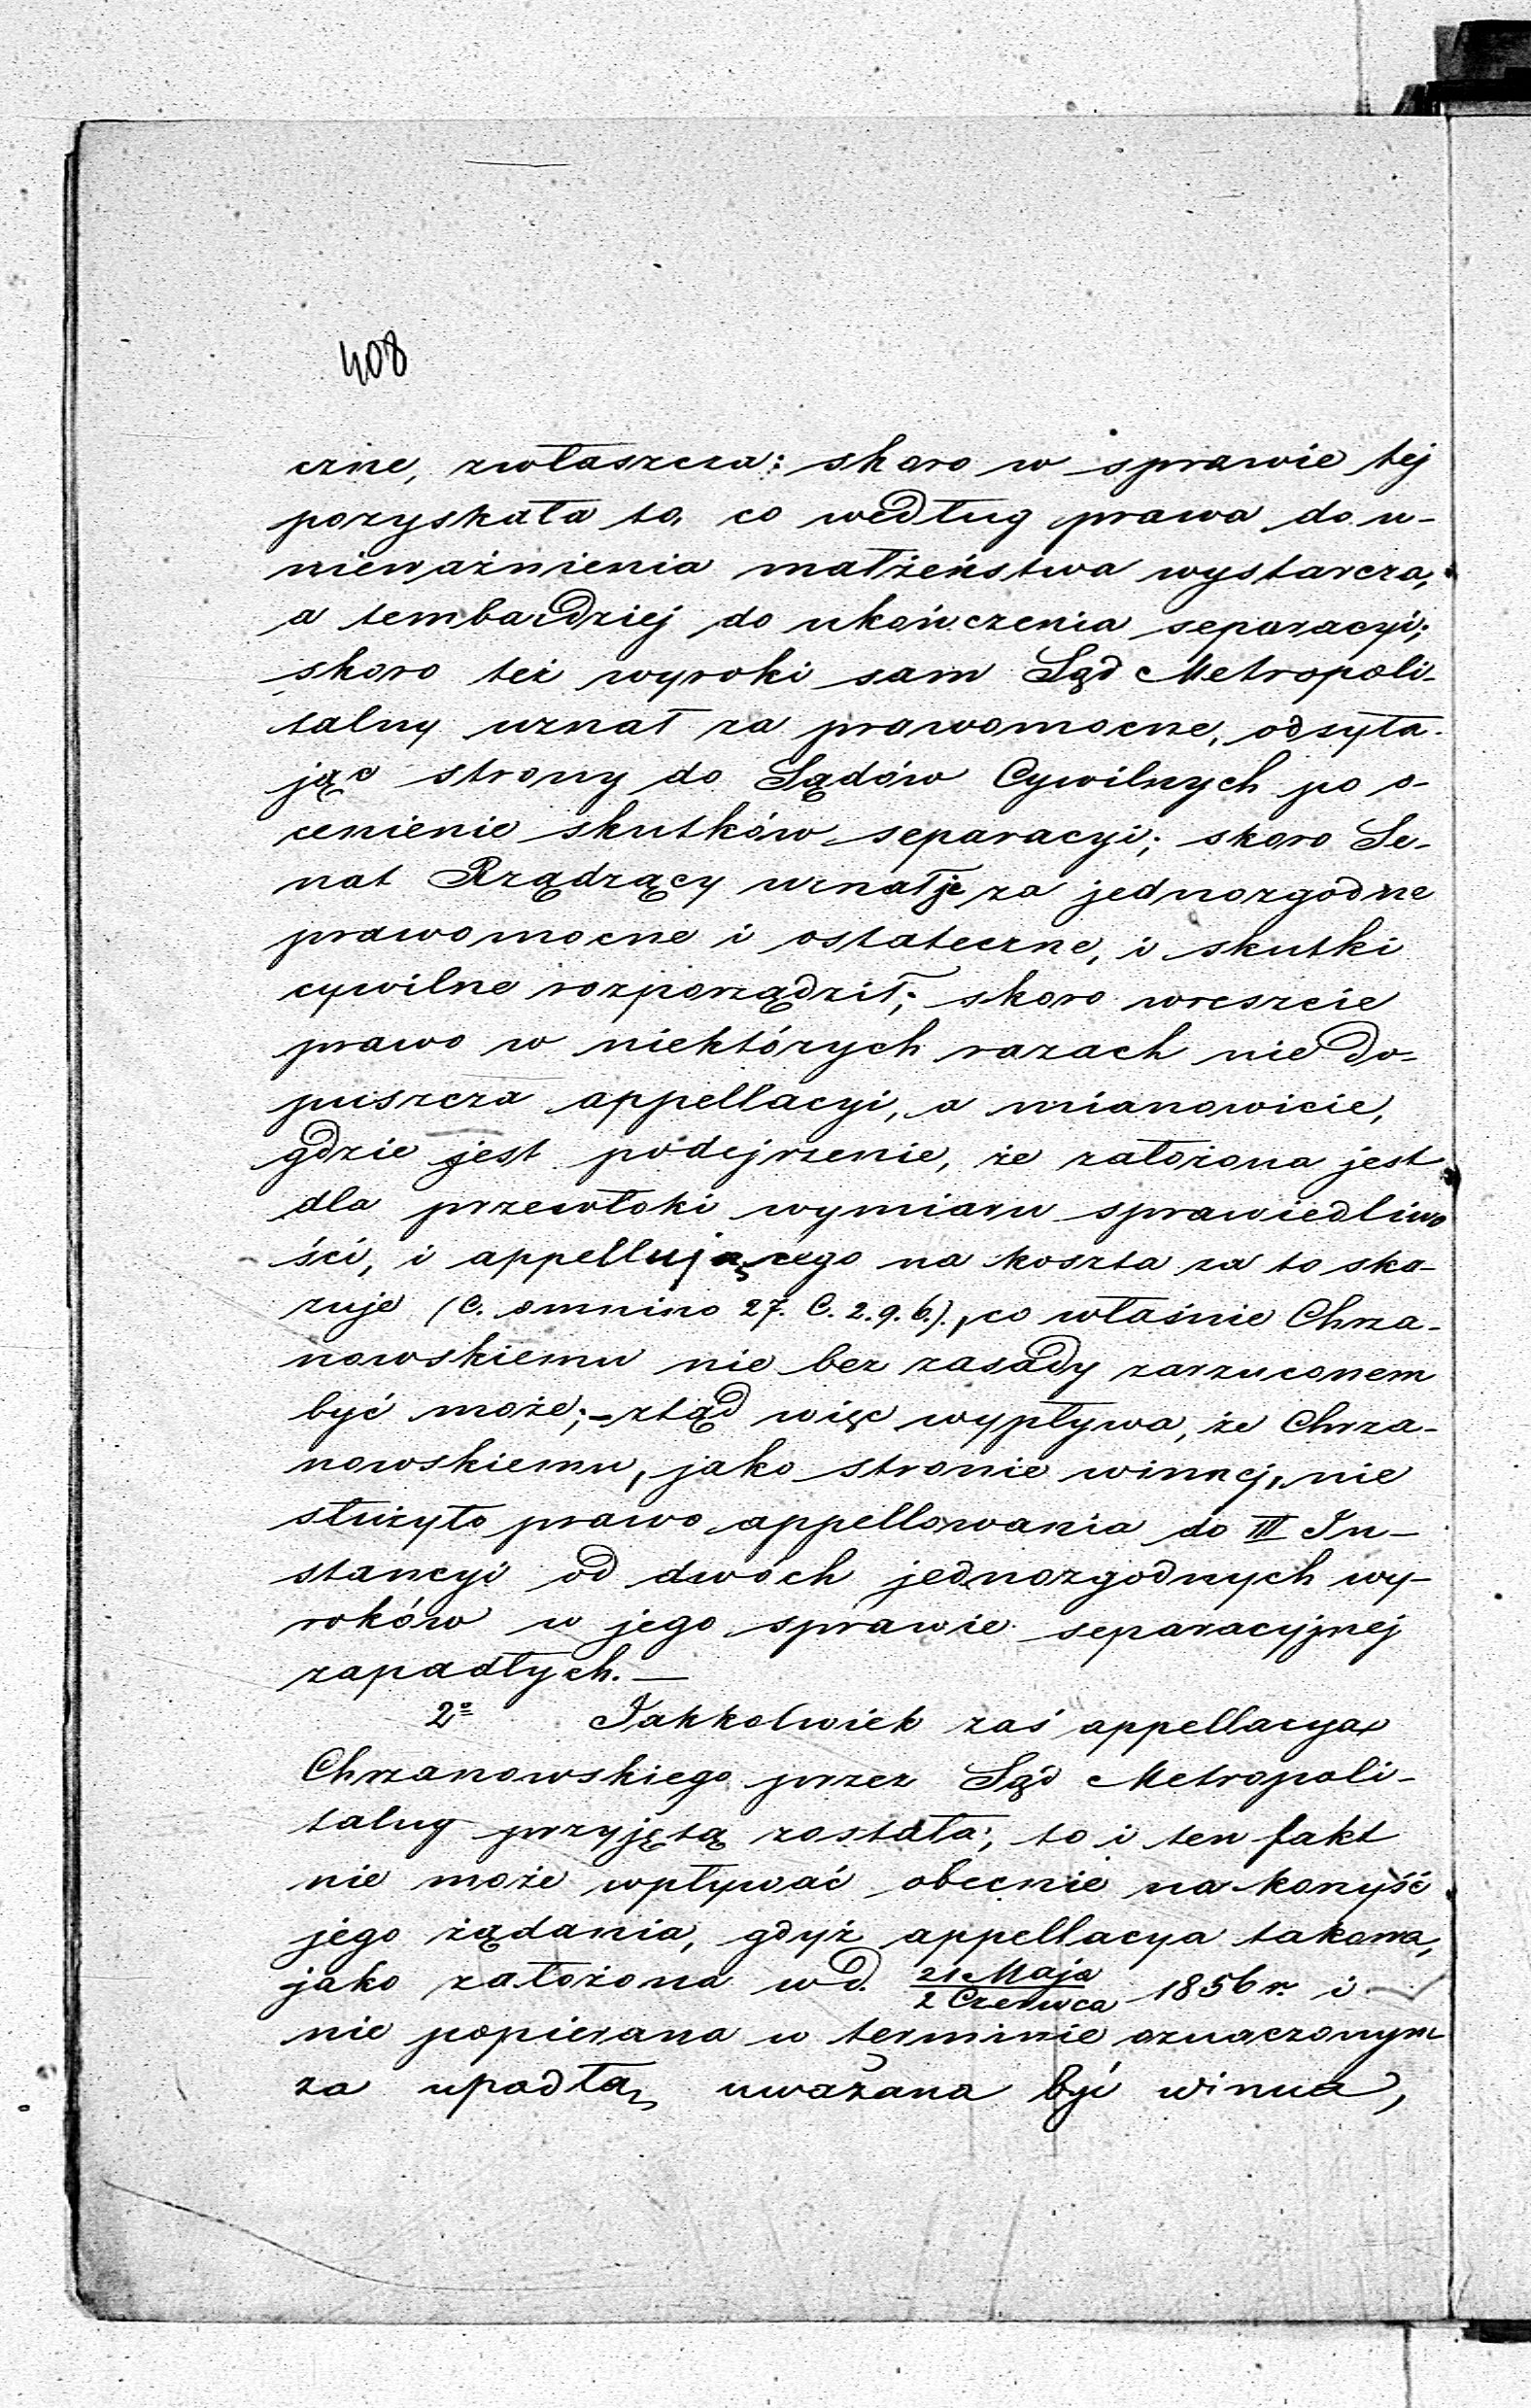 408
czne, zwłaszcza: skoro w sprawie tej
pozyskała to, co według prawa do u-
nieważnienia małżeństwa wystarcza,
a tembardziej do ukończenia separacyi;
skoro też wyroki sam Sąd Metropoli-
talny uznał za prawomocne, odsyła-
jąc strony do Sądów Cywilnych po o-
cenienie skutków separacyi; skoro Se-
nat Rządzący uznał je za jednozgodne
prawomocne i ostateczne, i skutki
cywilne rozporządził; skoro wreszcie
prawo w niektórych razach nie do-
puszcza appellacyi, a mianowicie,
gdzie jest podejrzenie, że założona jest
dla przewłoki wymiaru sprawiedliwo
ści, i appellującego na koszta za to ska-
zuje (C. omnino 27. C. 2. q. 6.), co właśnie Chrza-
nowskiemu nie bez zasady zarzuconem
być może; - ztąd więc wypływa, że Chrza-
nowskiemu, jako stronie winnej, nie
służyło prawo appellowania do III In-
stancyi od dwóch jednozgodnych wy-
roków w jego sprawie separacyjnej
zapadłych. —
2º Jakkolwiek zaś appellacya
Chrzanowskiego przez Sąd Metropoli-
talny przyjętą została; to i ten fakt
nie może wpływać obecnie na korzyść
jego żądania, gdyż appellacya takowa,
jako założona w d. 21 Maja / 2 Czerwca 1856 r. i
nie popierana w terminie oznaczonym
za upadłą uważana być winna,